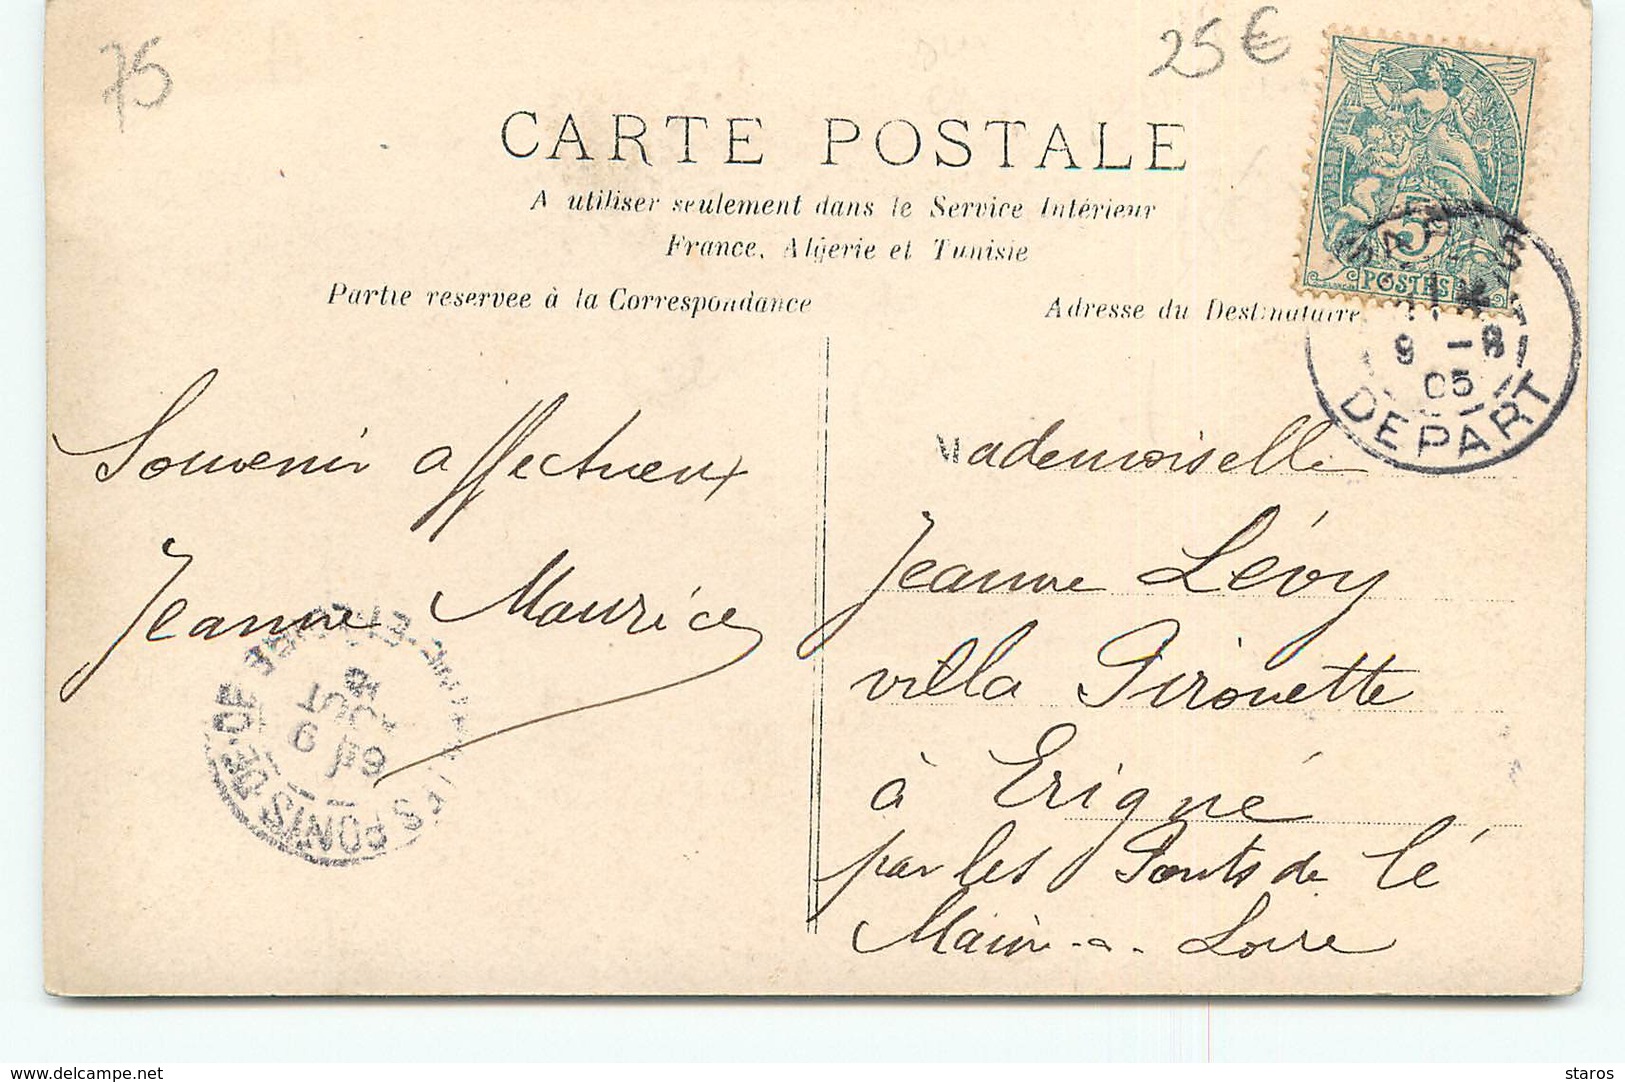 75
25€
CARTE POSTALE
A utiliser seulement dans le Service Intérieur
France, Algérie et Tunisie
Partie reservee à la Correspondance
Adresse du Destinataire
5
POSTES
9 -8
05
DEPART
Souvenir affectueux
Jeanne Maurice
Mademoiselle
Jeanne Lévy
villa Pirouette
à Erigné
par les Ponts de Cé
Maine-a-Loire
AOUT
PONTS-DE-CE
delcampe.net
staros